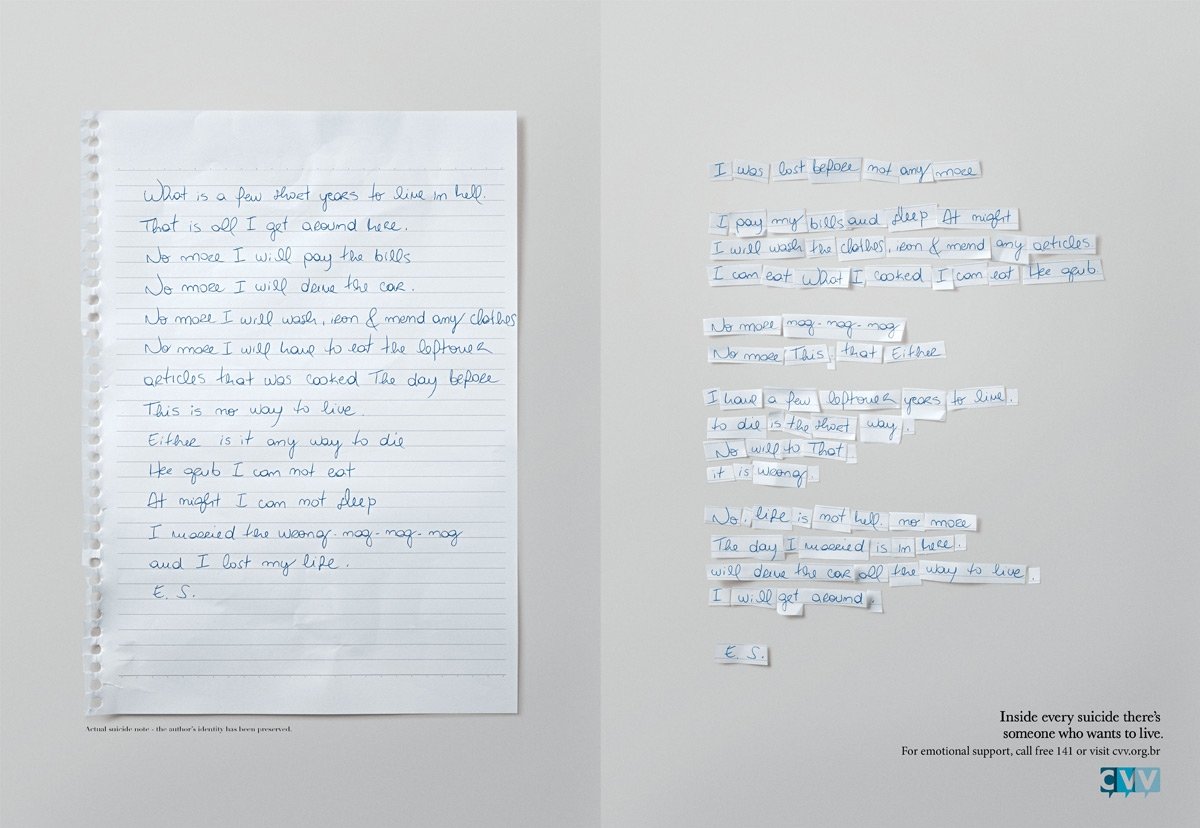 What is a few short years to live in hell.
That is all I get around here.
No more I will pay the bills
No more I will drive the car.
No more I will wash, iron & mend any clothes
No more I will have to eat the leftover
articles that was cooked The day before
This is no way to live
Either is it any way to die
Her grub I can not eat
At night I can not sleep
I married the wrong-nag-nag-nag
and I lost my life.
E. S.
Actual suicide note - the author's identity has been preserved.
I was lost before not any more
I pay my bills and sleep At night
I will wash the clothes, iron & mend any articles
I can eat What I cooked I can eat Her grub
No more nag-nag-nag
No more This, that Either
I have a few leftover years to live.
to die is the short way.
No will to That
it is wrong.
No, life is not hell no more
The day I married is in here.
will drive the car all the way to live.
I will get around.
E. S.
Inside every suicide there's
someone who wants to live.
For emotional support, call free 141 or visit cvv.org.br
CVV